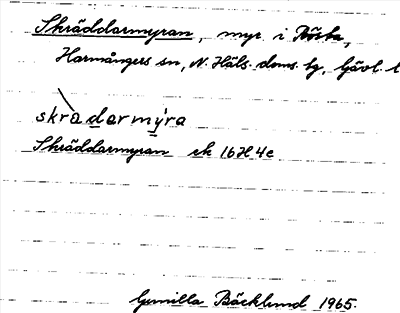 Skräddarmyran, myr i Rösta,
Harmångers sn, N. Häls. doms. hg, Gävl. l
skràdarmýra
Skräddarmyran ek 16H4e
Gunilla Bäcklund 1965.